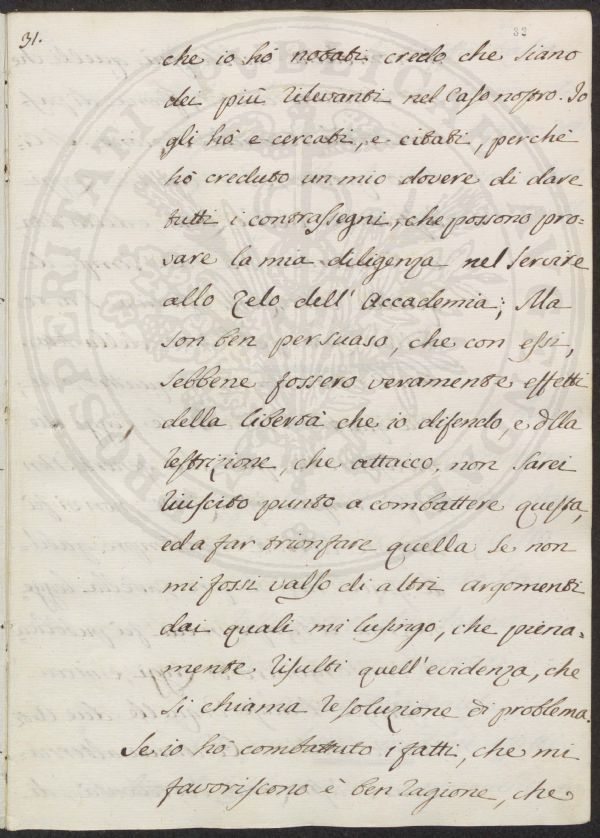 31.
33
che io hò notati credo che siano
dei più rilevanti nel Caso nostro. Io
gli hò e cercati, e citati, perchè
hò creduto un mio dovere di dare
tutti i contrassegni, che possono pro=
vare la mia diligenza nel servire
allo Zelo dell'Accademia; Ma
son ben persuaso, che con essi,
sebbene fossero veramente effetti
della libertà che io difendo, e dlla
restrizione, che attacco, non sarei
riuscito punto a combattere questa,
ed a far trionfare quella se non
mi fossi valso di altri argomenti
dai quali mi lusingo, che piena=
mente risulti quell'evidenza, che
si chiama resoluzione di problema.
Se io hò combattuto i fatti, che mi
favoriscono è ben ragione, che
PROSPERITATI PUBLICAE AU